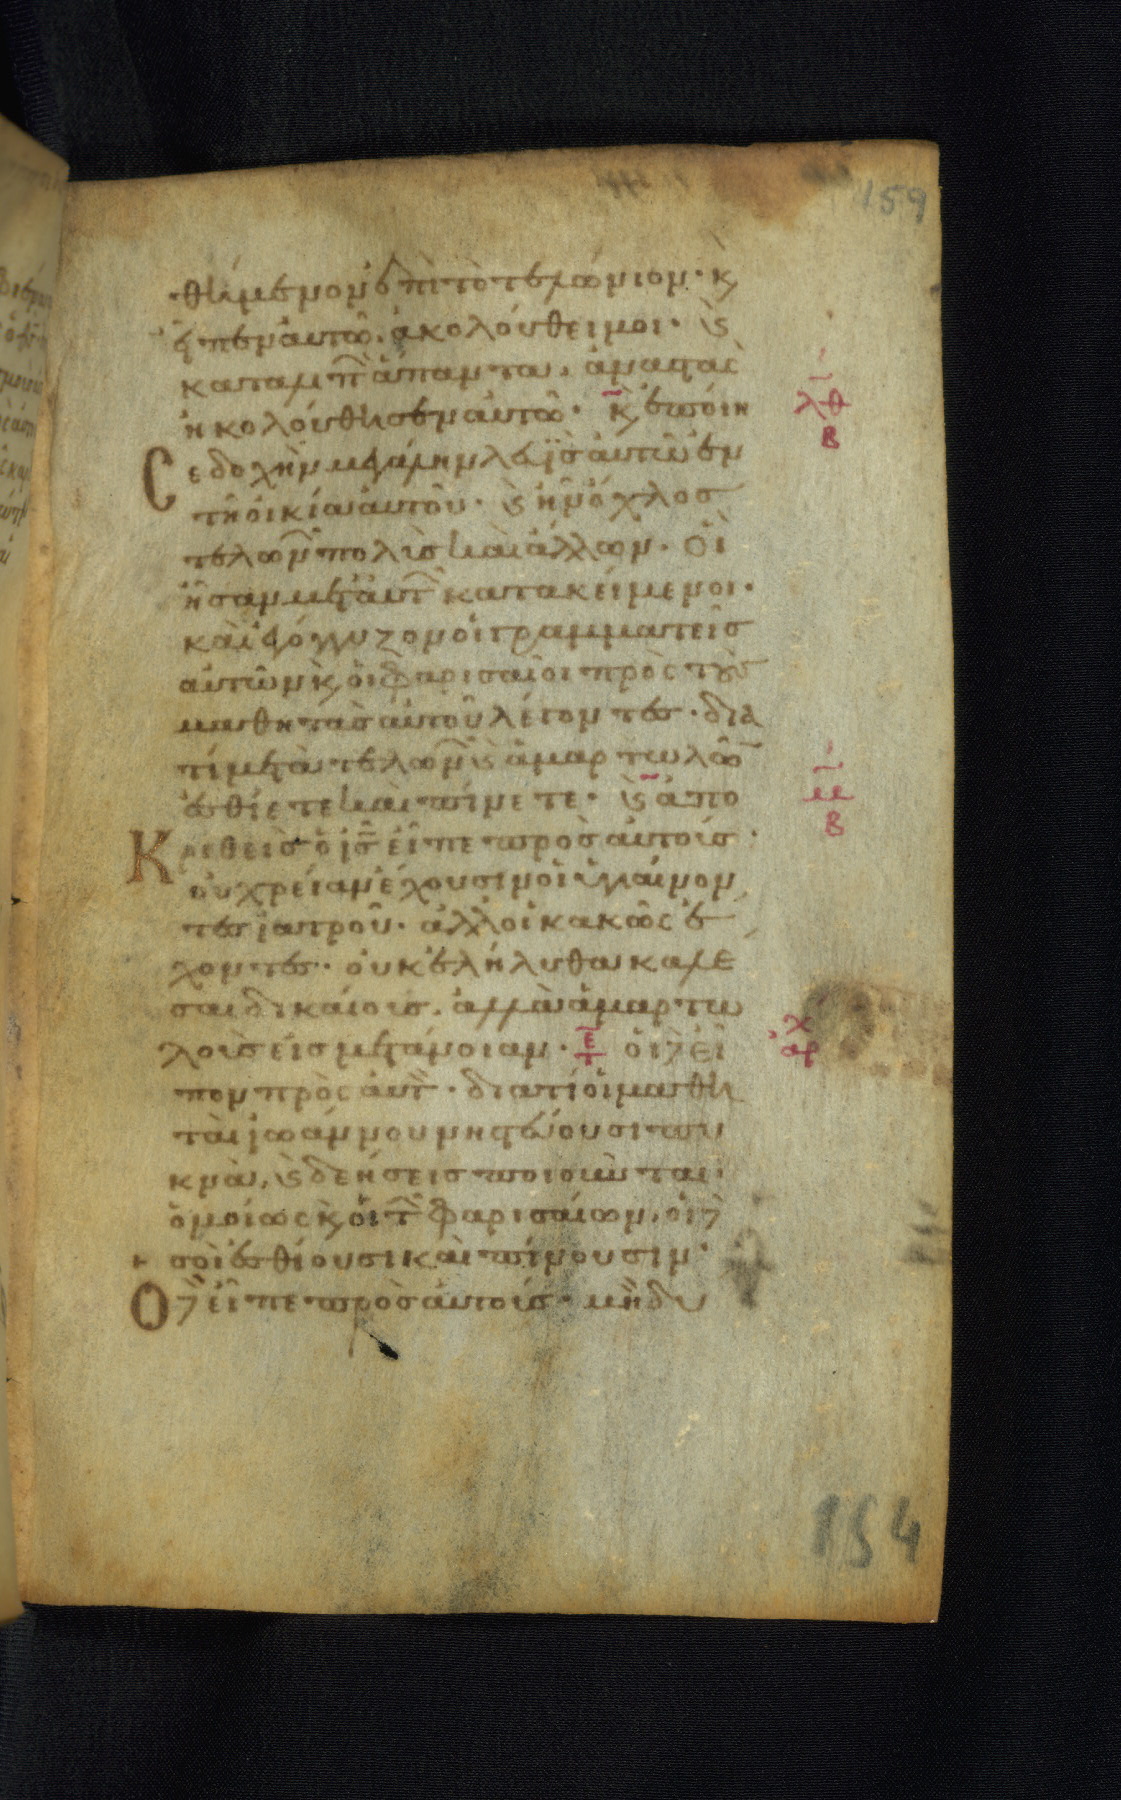 159
θήμενον ἐπὶ τὸ τελώνιον· κ
εἶπεν αὐτῶ· ἀκολούθει μοι· ϗ
καταλιπ ἅπαντα, ἀναστὰς
ἠκολούθησεν αὐτῶ· ϗ ἐποίη
λθ
β
Σε δοχὴν μεγάλην λευῒς αὐτῶ ἐν
τῆ οἰκία αὐτοῦ· ϗ ἦν ὄχλοσ
τελων πολὺς καὶ ἄλλων· οἳ
ἦσαν μετ αυτ κατακείμενοι·
καὶ ἐγόγγυζον οἱ γραμματεῖσ
αὐτῶν ϗ οἱ φαρισαῖοι πρὸς τοὺς
μαθητὰς αὐτοῦ λέγοντες· δια
τί μετὰ τελων ϗ ἁμαρτωλῶ
ἐσθίετε καὶ πίνετε· ϗ ἀπο
μ
β
Κριθεὶς ὁ ις εἶπε πρὸς αὐτούς·
οὐ χρείαν ἔχουσιν οἱ ὑγιαίνον
τες ἰατροῦ· ἀλλ οἱ κακῶς ἔ
χοντες· οὐκ ἐλήλυθα καλε
σαι δικαίους, ἀλλὰ ἁμαρτω
λοὺς εἰς μετάνοιαν· οἱ δὲ εἶ
χ
αρ
πον πρὸς αυτ· διατί οἱ μαθη
ταὶ ἰωάννου νηστεύουσι πυ
κνὰ, ϗ δεήσεις ποιοῦνται·
ὁμοίως ϗ οἱ τ φαρισαίων, οἱ δὲ
σοὶ ἐσθίουσι καὶ πίνουσιν·
Ο δὲ εἶπε πρὸς αὐτούς· μὴ δυ
154